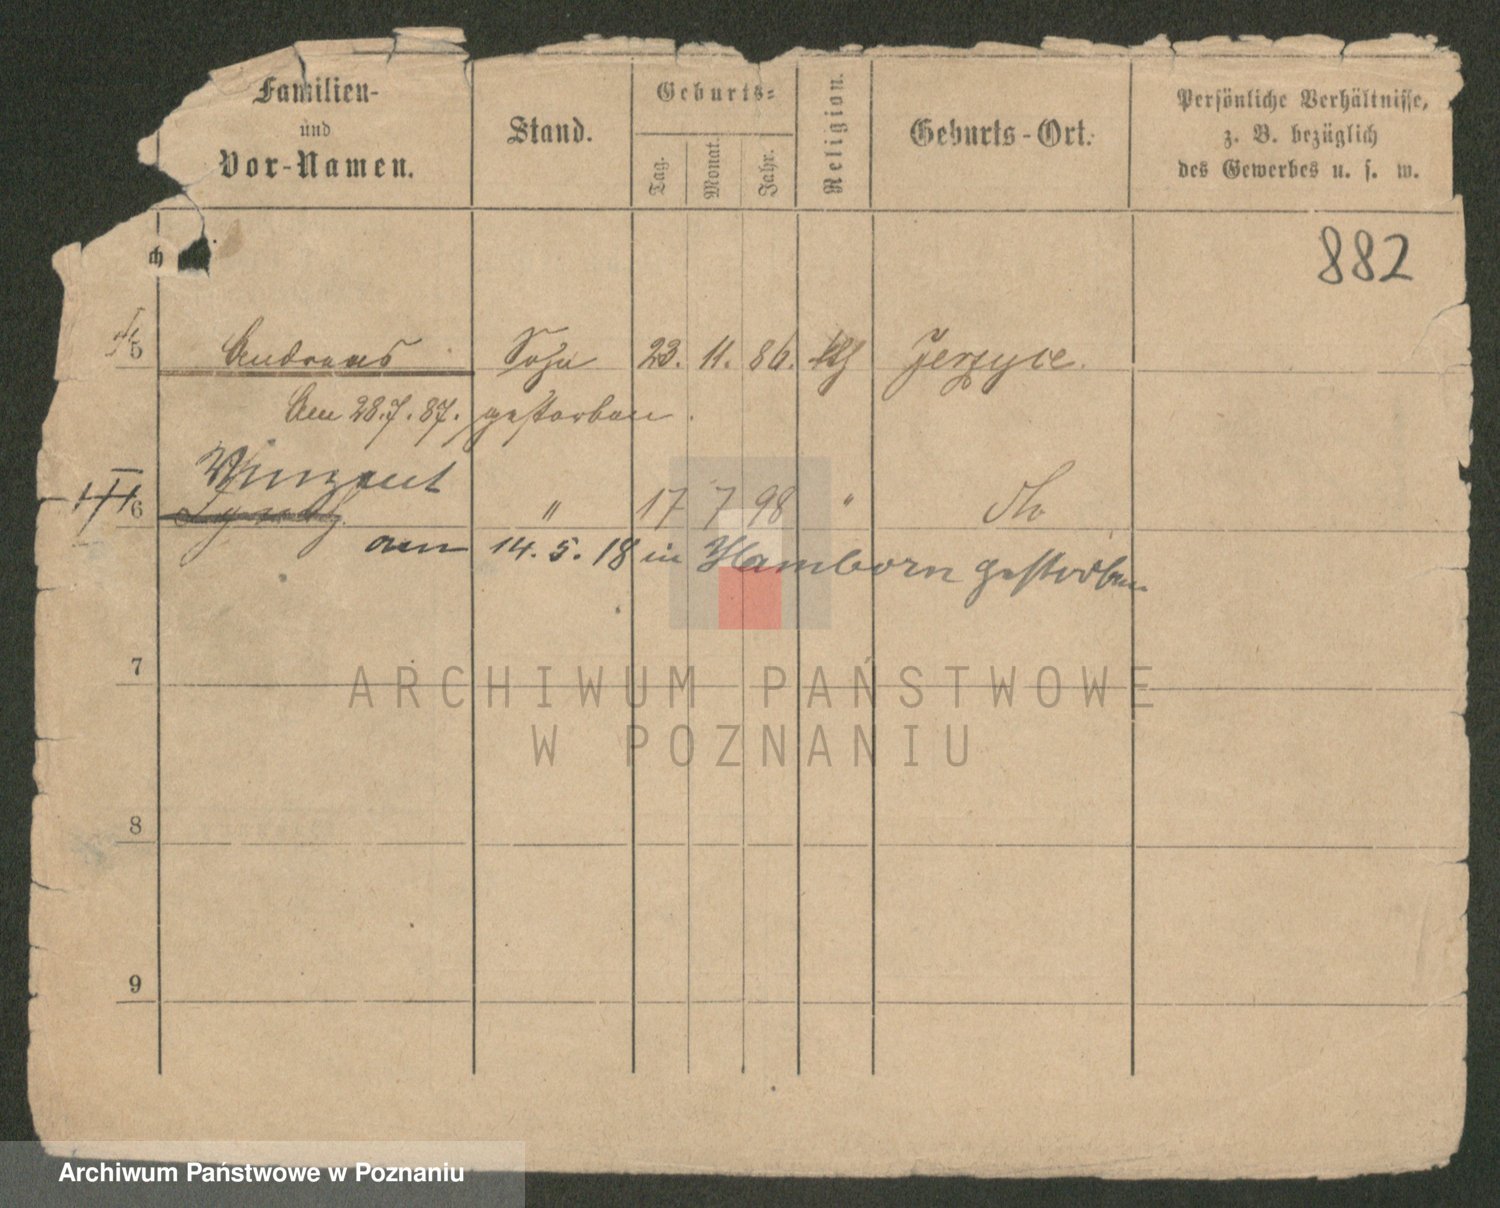 Familien-
und
Vor-Namen.
Stand.
Geburts=
Tag.
Monat.
Jahr.
Religion.
Geburts-Ort.
Persönliche Verhältnisse,
z. B. bezüglich
des Gewerbes u. s. w.
ch
882
5 Andreas Sohn 23. 11. 86. kth Jerzyce.
Am 28.7.87. gestorben.
Vinzent
6 " 17 7 98 " do
am 14. 5. 18 in Hamborn gestorben
7
ARCHIWUM PAŃSTWOWE
W POZNANIU
8
9
Archiwum Państwowe w Poznaniu